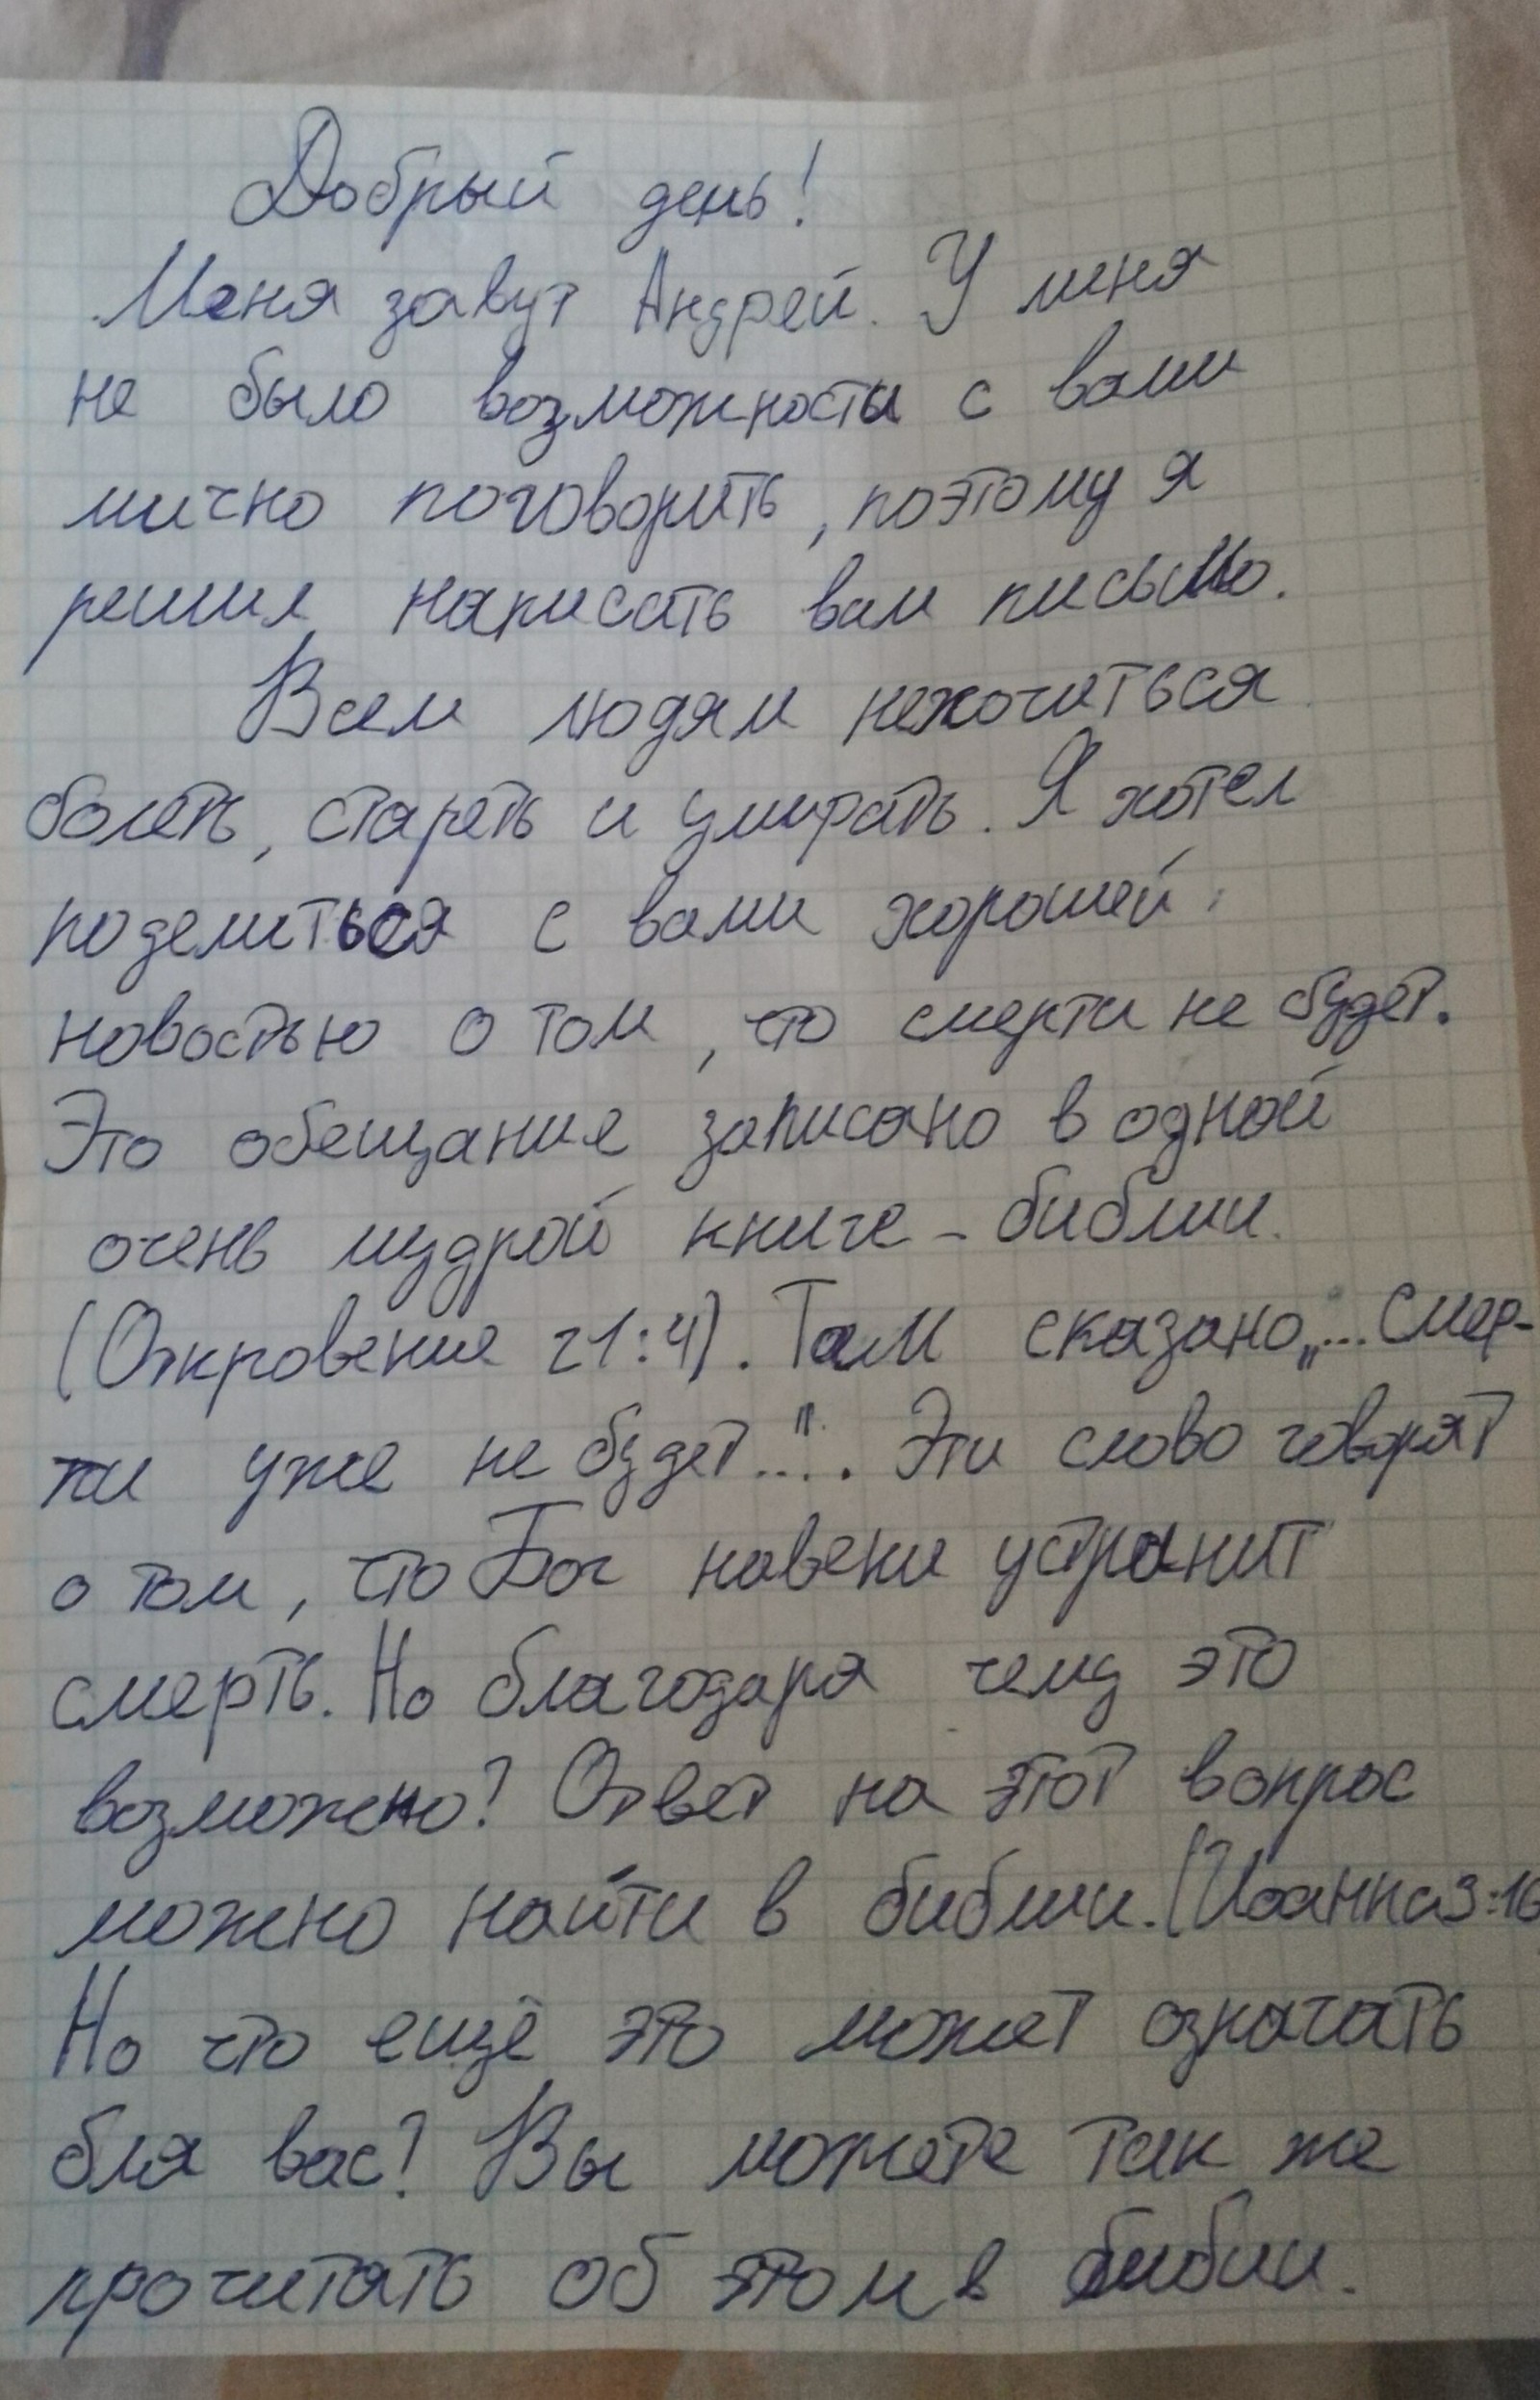 Добрый день!
Меня завут Андрей. У меня
не было возможности с вами
лично поговорить, поэтому я
решил написать вам письмо.
Всем людям нехочиться
болеть, стареть и умирать. Я хотел
поделиться с вами хорошей
новостью о том, что смерти не будет.
Это обещание записано в одной
очень мудрой книге - библии.
(Откровение 21:4). Там сказано „... Смер-
ти уже не будет...". Эти слово говорят
о том, что Бог навеки устранит
смерть. Но благодаря чему это
возможно? Ответ на этот вопрос
можно найти в библии. (Иоанна 3:16
Но что ещё это может означать
бля вас? Вы можете так же
прочитать об этом в бибии.